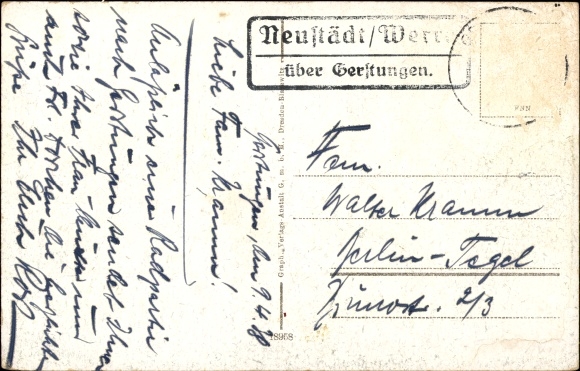 Neustädt/Werra
über Gerstungen.
Gerstungen, den 9.4.38
Liebe Fam. Kramm!
Anläßlich einer Radpartie
nach Gerstungen sendet Ihnen
sowie Ihrer Frau
und Frl. die herzlichsten
Grüße Ihr
Fam.
Walter Kramm
Berlin-Tegel
2/3
Graph. Verlags-Anstalt G. m. b. H., Dresden
18958